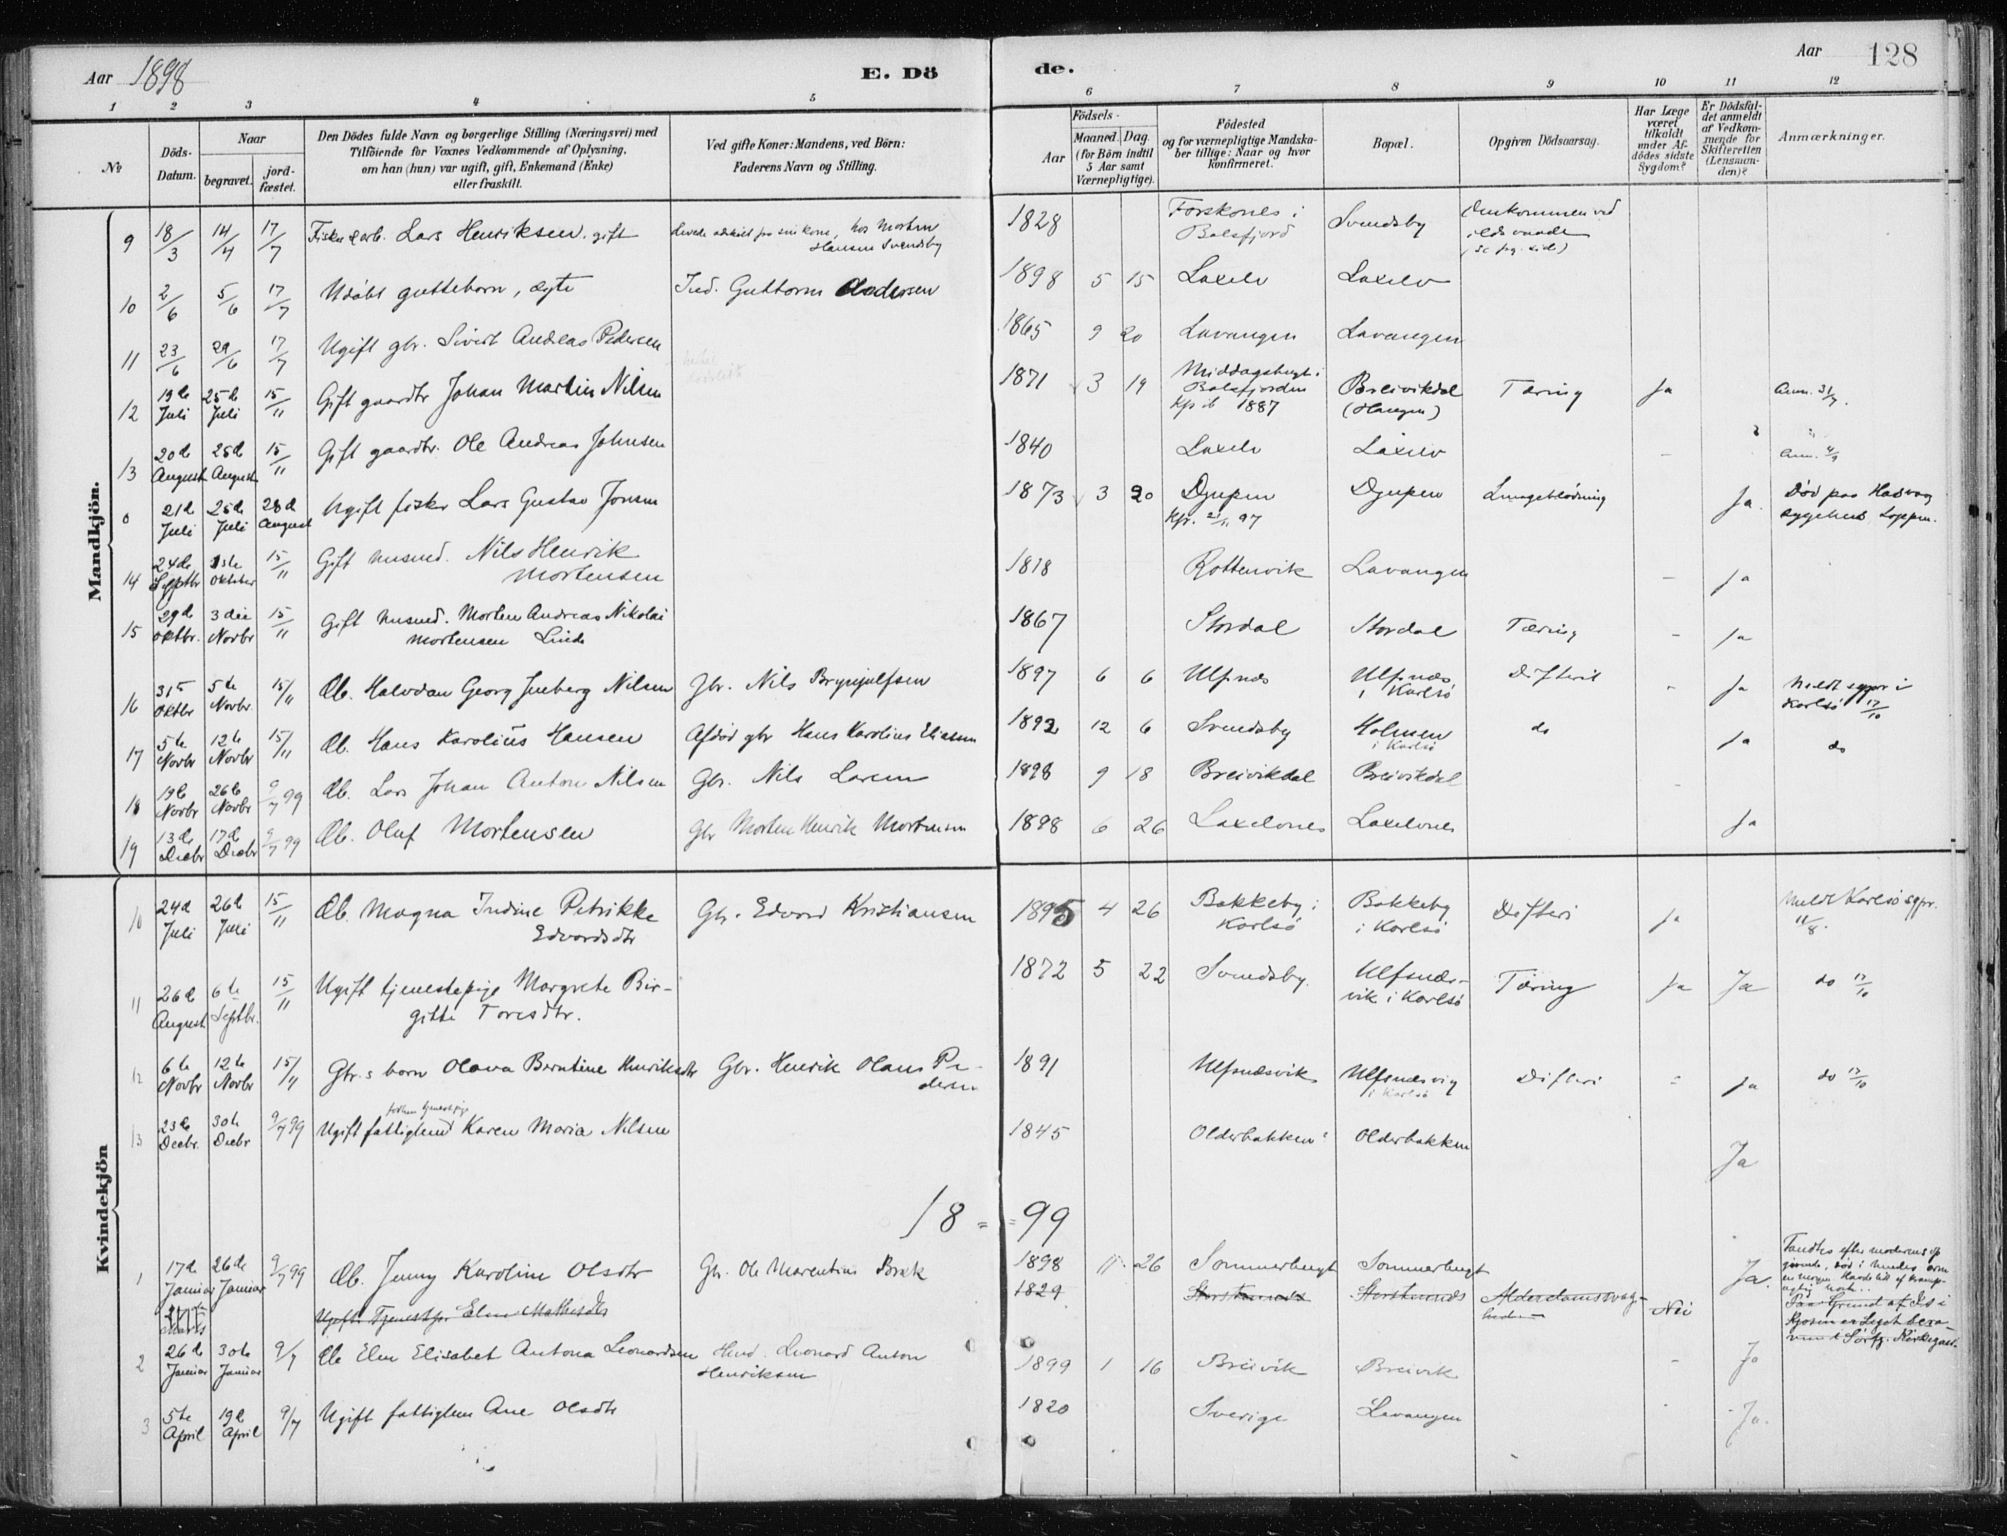 Aar 1898
E. Dö
de.
Aar 128
1 2 3 4 5 6 7 8 9 10 11 12
No
Döds-Datum.
Naar
begravet.
jord-fæstet.
Den Dödes fulde Navn og borgerlige Stilling (Næringsvei) med
Tilföiende for Voxnes Vedkommende af Oplysning,
om han (hun) var ugift, gift, Enkemand (Enke)
eller fraskilt.
Ved gifte Koner: Mandens, ved Börn:
Faderens Navn og Stilling.
Födsels-
Aar
Maaned. Dag.
(for Börn indtil
5 Aar samt
Værnepligtige).
Födested
og for værnepligtige Mandska-
ber tillige: Naar og hvor
konfirmeret.
Bopæl.
Opgiven Dödsaarsag.
Har Læge
været
tilkaldt
under Af-
dödes sidste
Sygdom?
Er Dödsfal-
det anmeldt
af Vedkom-
mende for
Skifteretten
(Lensman-
den)?
Anmærkninger.
Mandkjön.
9 18/3 14/4 17/7 Fisker Lars Henriksen. gift hos Morten Hansen Svendsby 1828 Forskones i Balsfjord Svendsby Omkommen ved
10 2/6 5/6 17/7 Udøbt guttebarn, ægte Ind. Guttorm Andersen 1898 5 15 Laxelv Laxelv
11 23/6 29/6 17/7 Ugift gbr. Sivert Andreas Pedersen 1865 9 20 Lavangen Lavangen
12 19de Juli 25de Juli 15/11 Gift gaardbr Johan Martin Nilsen 1871 3 19 Balsfjorden 1887 Breivikdal (Haugen) Tæring Ja Anm. 31/7.
13 20de August 25de August 15/11 Gift gaardbr. Ole Andreas Johnsen 1840 Laxelv Laxelv -
0 21de Juli 25de Juli 28de August Ugift fisker Lars Gustav Jonsen 1873 3 20 Djupen Djupen Lungeblødning Ja. Død paa Hasvag sygehus Loppen.
14 24de Septbr 1ste Oktober 15/11 Gift husmd. Nils Henrik Mortensen 1818 Rottenvik Lavangen - Ja
15 29de Oktbr. 3die Novbr 15/11 Gift husmd. Morten Andreas Nikolai Mortensen Linde 1867 Stordal Stordal Tæring - Ja
16 31te Oktbr 5te Novbr. 15/11 Æb. Halvdan Georg Nilsen Gbr. Nils Brynjulfsen 1897 6 6 Ulfsnæs Ulfsnæs, i Karlsø Difteri - Ja Meldt sgpr i Karlsø 17/10
17 5te Novbr 12te Novbr 15/11 Æb. Hans Karolius Hansen Afdød gbr Hans Karolius Eliasen 1892 12 6 Svendsby Holmen i Karlsø do Ja do
18 19de Novbr 26de Novbr 9/7 99 Æb. Lars Johan Anton Nilsen Gbr. Nils Larsen 1898 9 18 Breivikdal Breivikdal -
19 13de Decbr 17de Decbr 9/7 99 Æb. Oluf Mortensen Gbr Morten Henrik Mortensen 1898 6 26 Laxelvnes Laxelvnes Ja
Kvindekjön
10 24de Juli 26de Juli 15/11 Æb. Magna Indine Petrikke Edvardsdtr Gbr. Edvard Kristiansen 1895 4 26 Bakkeby i Karlsø Bakkeby i Karlsø Difteri Ja Meldt Karlsø sgpr. 11/8.
11 26de August 6te Septbr. 15/11 Ugift tjenestepige Margrete Birgitte Toresdtr. 1872 5 22 Svendsby. Ulfsnæsvik i Karlsø Tæring Ja Ja do 17/10
12 6te Novbr 12te Novbr 15/11 Gbr.s barn Olava Berntine Henriksdtr Gbr. Henrik Olaus Pedersen 1891 Ulfsnæsvik Ulfsnæsvig i Karlsø Difteri - Ja do 17/10
13 23de Decbr. 30te Decbr 9/7 99 Ugift fattiglem Karen Maria Nilsen 1845 Olderbakken Olderbakken Ja
18 = = 99
1 17de Januar 26de Januar 9/7 99 Æb. Jenny Karoline Olsdtr Gbr. Ole Marentius Bræk 1898 11 26 Sommerbugt Sommerbugt Ja.
Marts Ugift Tjenestpr Elen Mathisdtr 1829 Storstennes Storstennes Alderdomssvaghed Nei Paa Grund af Is i
2 26de Januar 30te Januar 9/7 Æb Elen Elisabet Antona Leonardsen Husmd. Leonard Anton Henriksen 1899 1 16 Breivik Breivik - Ja
3 5te April 19de April 9/7 Ugift fattiglem Ane Olsdtr 1820 Sverige Lavangen - Ja.